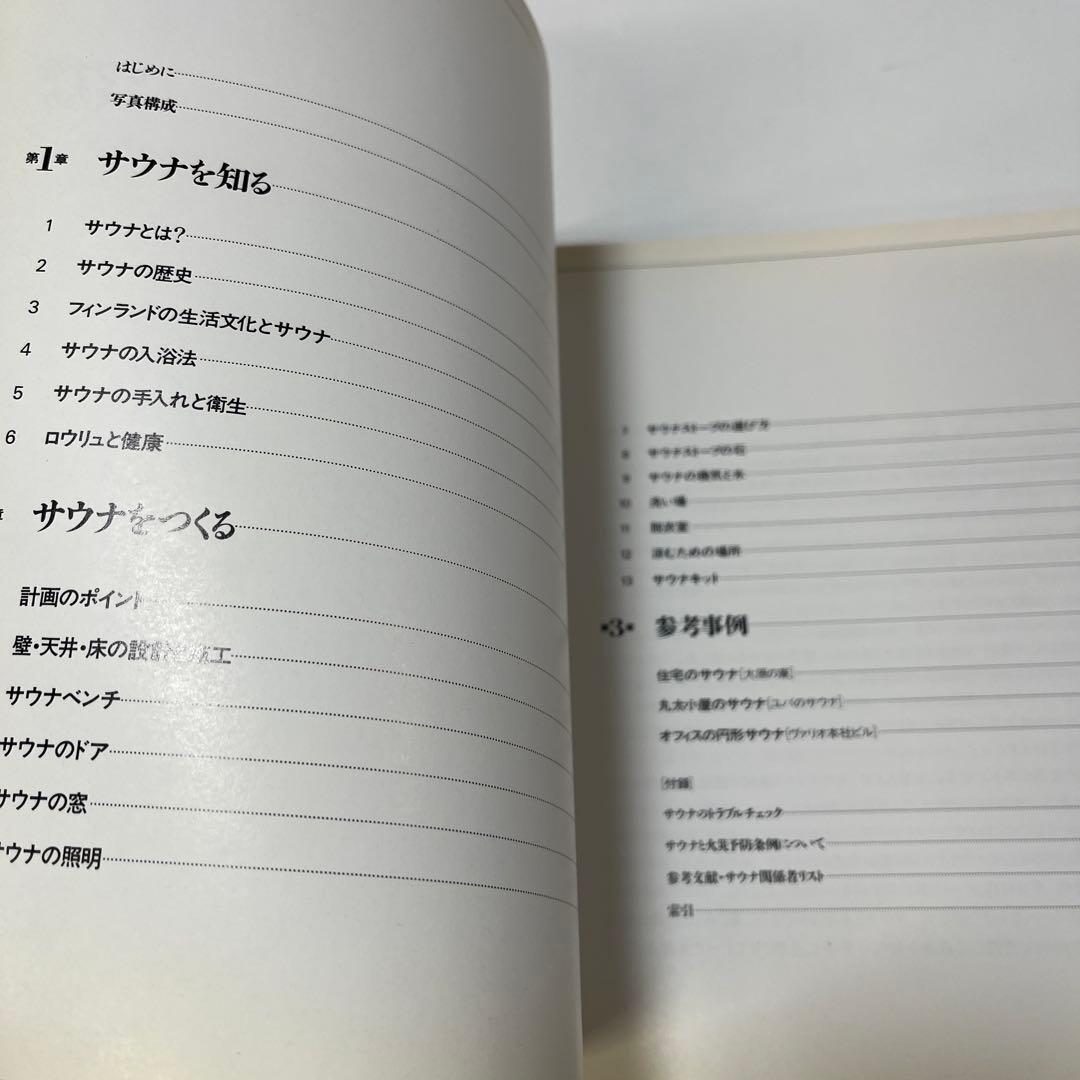 はじめに
写真構成
第1章 サウナを知る
1 サウナとは?
2 サウナの歴史
3 フィンランドの生活文化とサウナ
4 サウナの入浴法
5 サウナの手入れと衛生
6 ロウリュと健康
章 サウナをつくる
計画のポイント
壁・天井・床の設計と施工
サウナベンチ
サウナのドア
サウナの窓
サウナの照明
7 サウナストーブの選び方
8 サウナストーブの石
9 サウナの換気と水
10 洗い場
11 脱衣室
12 涼むための場所
13 サウナキット
3 参考事例
住宅のサウナ[大原の家]
丸太小屋のサウナ[ユバのサウナ]
オフィスの円形サウナ[ヴァリオ本社ビル]
[付録]
サウナのトラブルチェック
サウナと火災予防条例について
参考文献・サウナ関係者リスト
索引